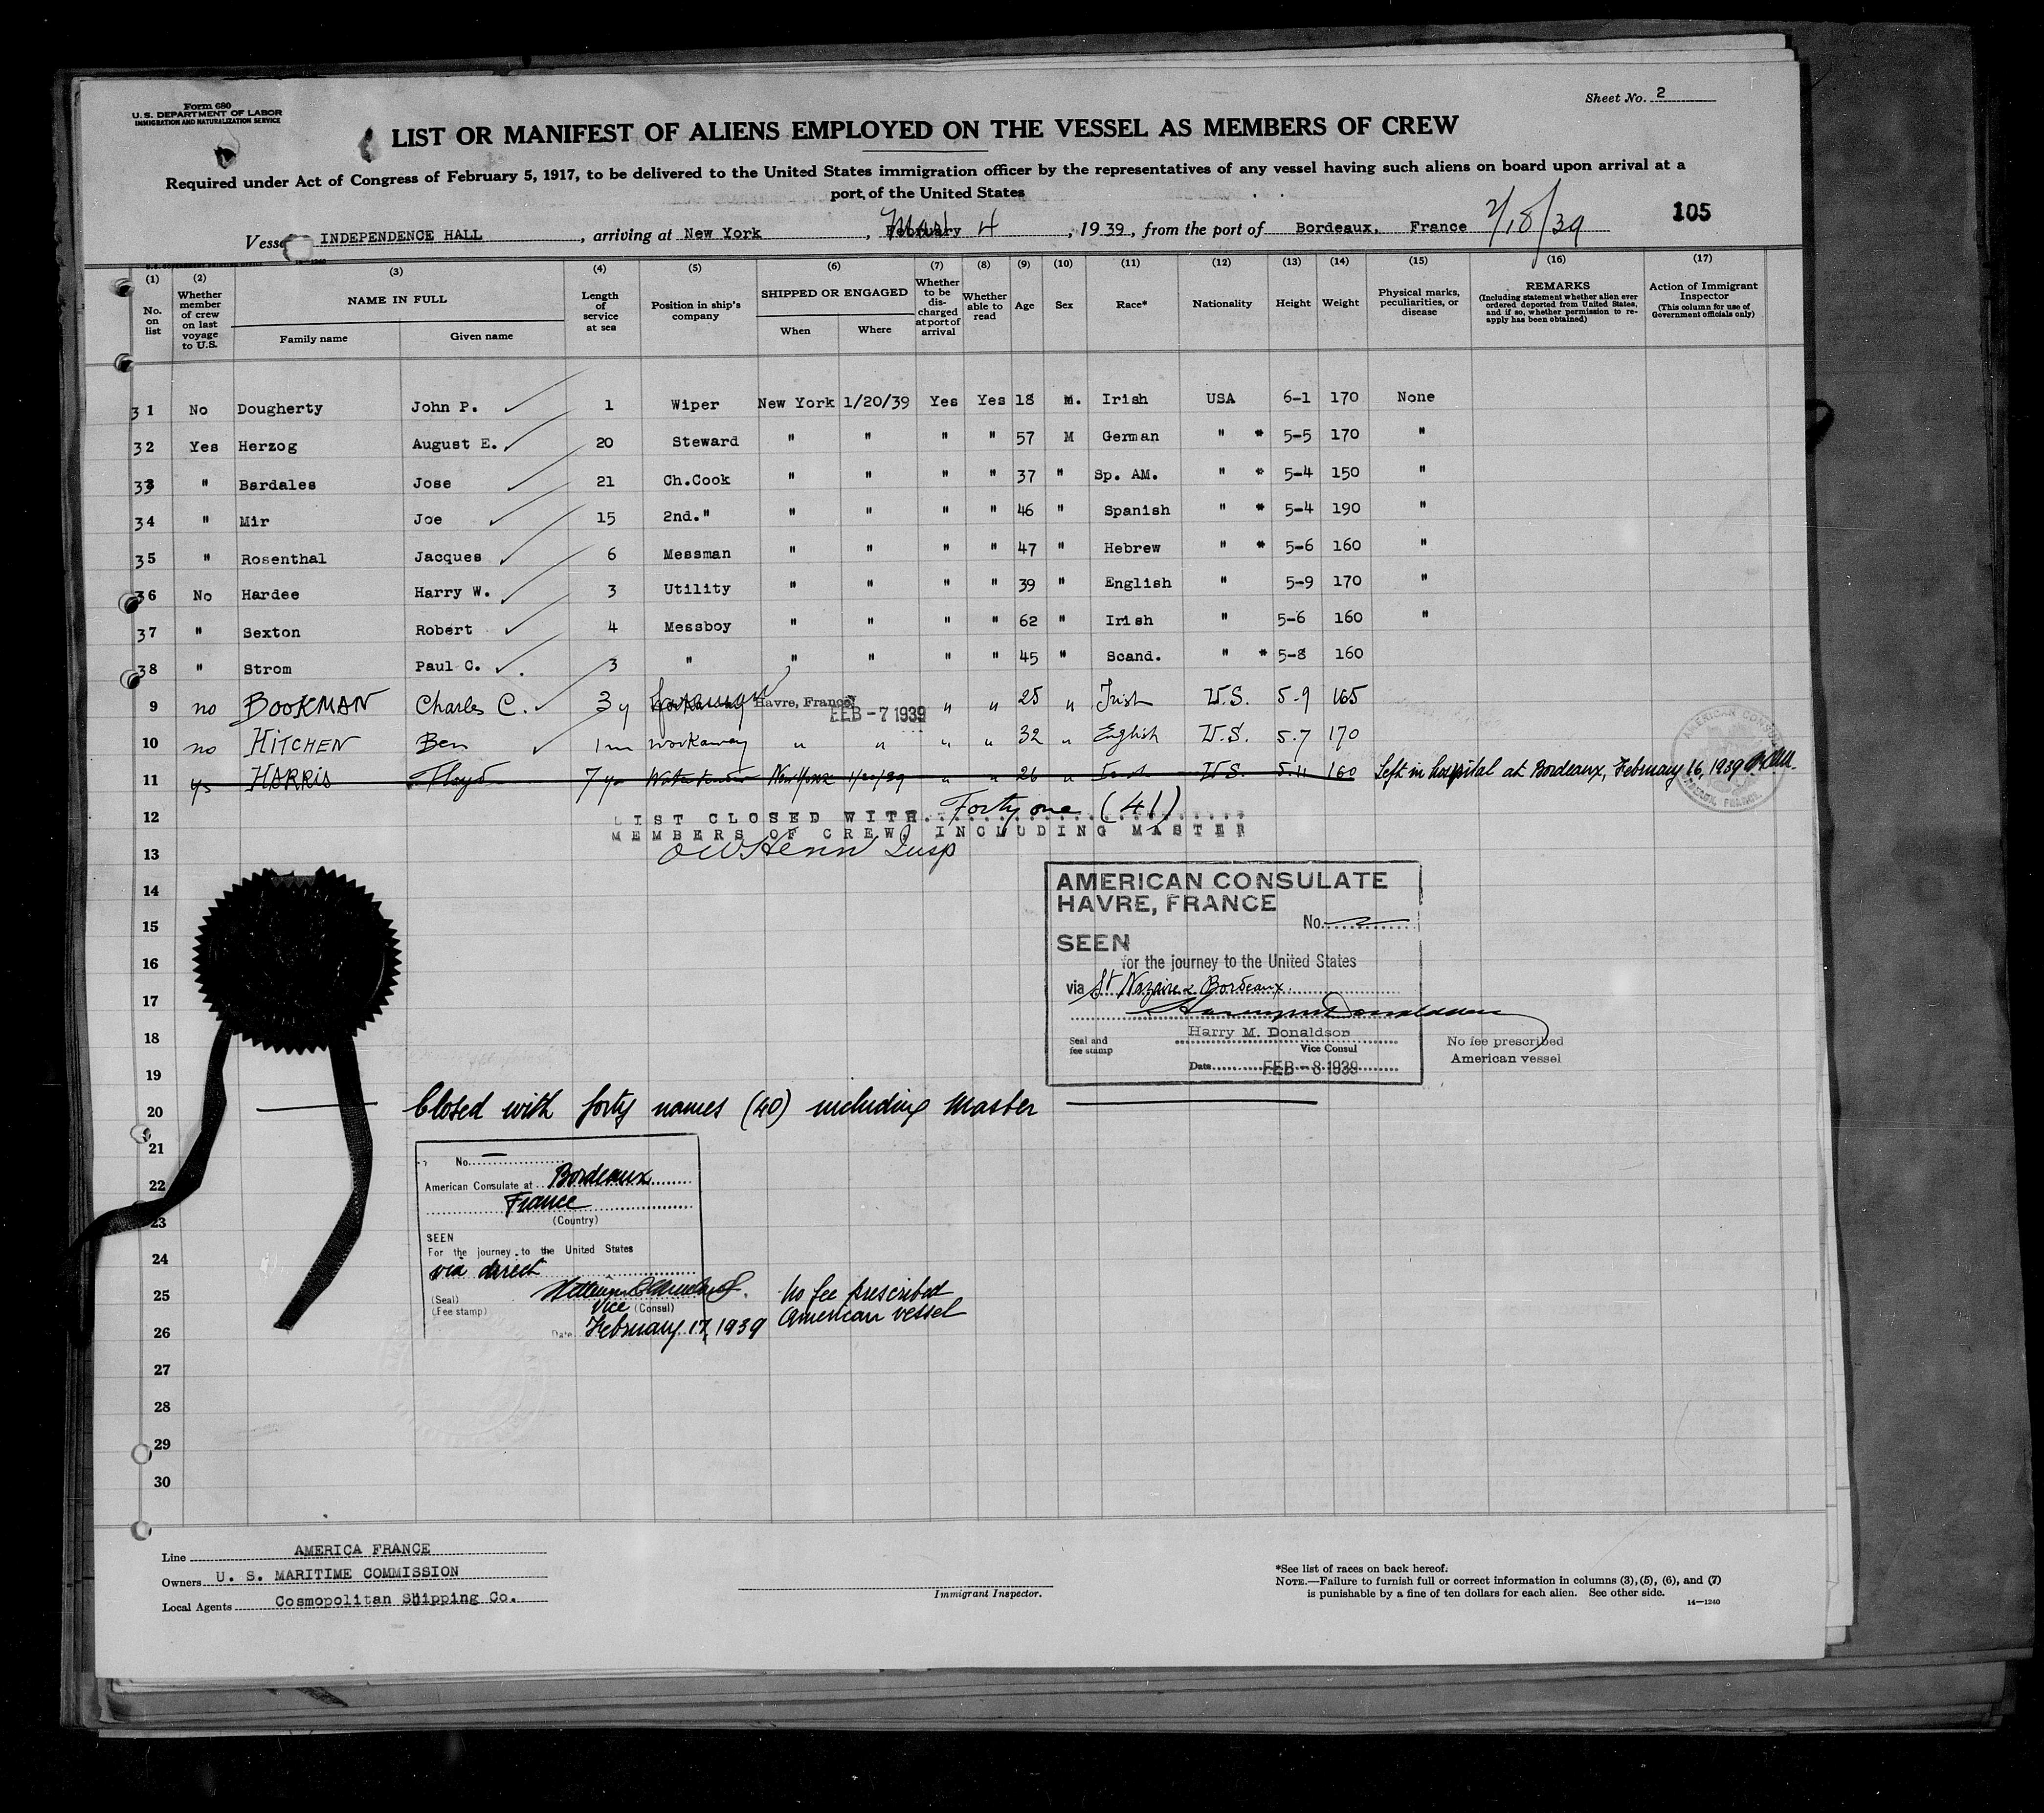 Form 680
U.S. DEPARTMENT OF LABOR
IMMIGRATION AND NATURALIZATION SERVICE
Sheet No. 2
LIST OR MANIFEST OF ALIENS EMPLOYED ON THE VESSEL AS MEMBERS OF CREW
Required under Act of Congress of February 5, 1917, to be delivered to the United States immigration officer by the representatives of any vessel having such aliens on board upon arrival at a
port of the United States
105
Vesse INDEPENDENCE HALL, arriving at New York, February Mar 4, 1939, from the port of Bordeaux, France 2/18/39
(1) (2) (3) (4) (5) (6) (7) (8) (9) (10) (11) (12) (13) (14) (15) (16) (17)
No. on list
Whether member of crew on last voyage to U.S.
NAME IN FULL
Family name Given name
Length of service at sea
Position in ship's company
SHIPPED OR ENGAGED
When Where
Whether to be discharged at port of arrival
Whether able to read
Age Sex Race* Nationality Height Weight
Physical marks, peculiarities, or disease
REMARKS
(Including statement whether alien ever ordered deported from United States, and if so, whether permission to reapply has been obtained)
Action of Immigrant Inspector
(This column for use of Government officials only)
31 No Dougherty John P. 1 Wiper New York 1/20/39 Yes Yes 18 M. Irish USA 6-1 170 None
32 Yes Herzog August E. 20 Steward " " " " 57 M German " * 5-5 170 "
33 " Bardales Jose 21 Ch.Cook " " " " 37 " Sp. AM. " * 5-4 150 "
34 " Mir Joe 15 2nd." " " " " 46 " Spanish " * 5-4 190 "
35 " Rosenthal Jacques 6 Messman " " " " 47 " Hebrew " * 5-6 160 "
36 No Hardee Harry W. 3 Utility " " " " 39 " English " 5-9 170 "
37 " Sexton Robert 4 Messboy " " " " 62 " Irish " 5-6 160 "
38 " Strom Paul C. 3 " " " " " 45 " Scand. " * 5-8 160
9 no BOOKMAN Charles C. 3 y Havre, France FEB -7 1939 " " 25 " Irish U.S. 5-9 165
10 no HITCHEN Ben 1 m workaway " " " " 32 " English U.S. 5.7 170
11 ys HARRIS Floyd 7 ys Watertender New York 1/20/39 " " 26 " U.S. 5.11 160 Left in hospital at Bordeaux, February 16, 1939
12 LIST CLOSED WITH Forty one (41)
MEMBERS OF CREW, INCLUDING MASTER
13 Insp
14
AMERICAN CONSULATE
HAVRE, FRANCE
15 No. 2
SEEN
16 for the journey to the United States
via St Nazaire & Bordeaux
17
Harry M. Donaldson
18 Seal and fee stamp Vice Consul
No fee prescribed
American vessel
Date FEB -8 1939
19
20 Closed with forty names (40) including Master
21
No.
22 American Consulate at Bordeaux
France
(Country)
23
SEEN
24 For the journey to the United States
via direct
25 (Seal) Vice (Consul) No fee prescribed
(Fee stamp) American vessel
26 Date February 17, 1939
27
28
29
30
Line AMERICA FRANCE
Owners U. S. MARITIME COMMISSION
Local Agents Cosmopolitan Shipping Co.
Immigrant Inspector.
*See list of races on back hereof.
NOTE.—Failure to furnish full or correct information in columns (3), (5), (6), and (7)
is punishable by a fine of ten dollars for each alien. See other side.
14—1240